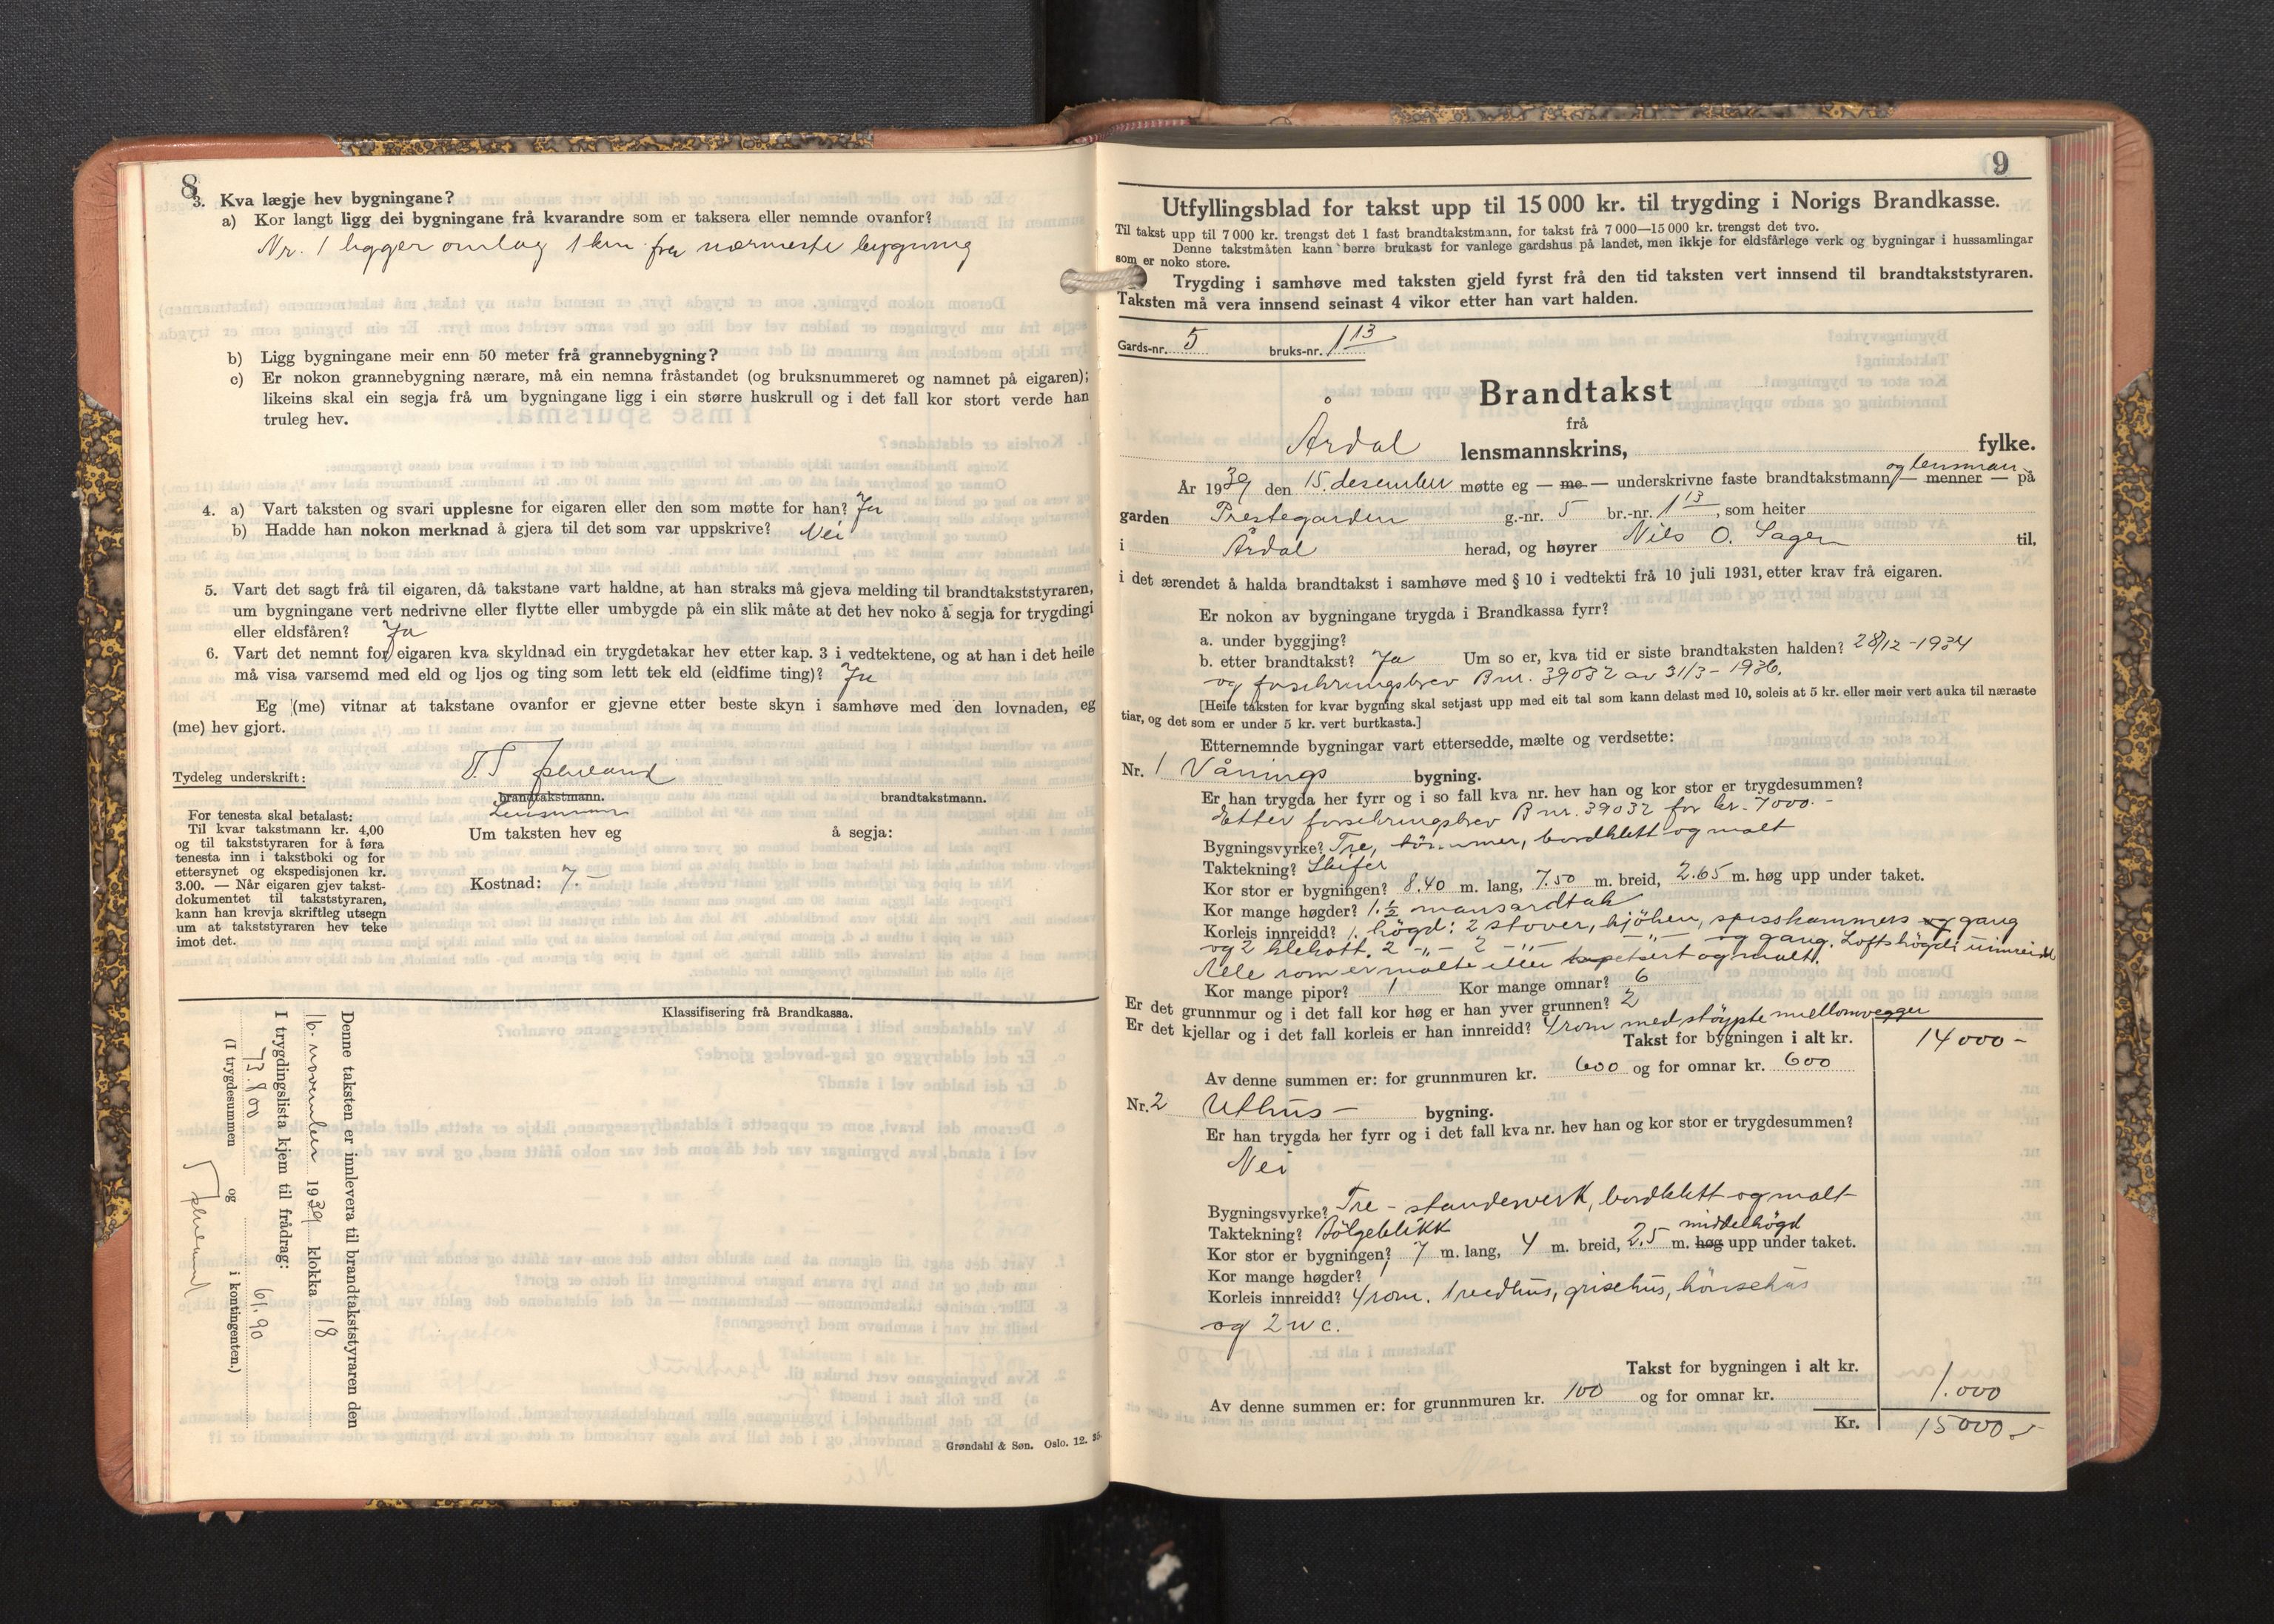 8
3. Kva lægje hev bygningane?
a) Kor langt ligg dei bygningane frå kvarandre som er taksera eller nemnde ovanfor?
Nr. 1 ligger omlag 1 km fra nærmeste bygning
b) Ligg bygningane meir enn 50 meter frå grannebygning?
c) Er nokon grannebygning nærare, må ein nemna fråstandet (og bruksnummeret og namnet på eigaren);
likeins skal ein segja frå um bygningane ligg i ein større huskrull og i det fall kor stort verde han
truleg hev.
4. a) Vart taksten og svari upplesne for eigaren eller den som møtte for han? Ja
b) Hadde han nokon merknad å gjera til det som var uppskrive? Nei
5. Vart det sagt frå til eigaren, då takstane vart haldne, at han straks må gjeva melding til brandtakststyraren,
um bygningane vert nedrivne eller flytte eller umbygde på ein slik måte at det hev noko å segja for trygdingi
eller eldsfåren? Ja
6. Vart det nemnt for eigaren kva skyldnad ein trygdetakar hev etter kap. 3 i vedtektene, og at han i det heile
må visa varsemd med eld og ljos og ting som lett tek eld (eldfime ting)? Ja
Eg (me) vitnar at takstane ovanfor er gjevne etter beste skyn i samhøve med den lovnaden, eg
(me) hev gjort.
Tydeleg underskrift:
brandtakstmann. brandtakstmann.
Lensmann
For tenesta skal betalast:
Til kvar takstmann kr. 4,00
og til takststyraren for å føra
tenesta inn i takstboki og for
ettersynet og ekspedisjonen kr.
3.00. — Når eigaren gjev takst-
dokumentet til takststyraren,
kann han krevja skriftleg utsegn
um at takststyraren hev teke
imot det.
Um taksten hev eg å segja:
Kostnad: 7.-
Klassifisering frå Brandkassa.
Denne taksten er innlevera til brandtakststyraren den
16. november 1939 klokka 18
I trygdingslista kjem til frådrag:
73.800 61.90
(I trygdesummen og i kontingenten.)
Grøndahl & Søn. Oslo. 12. 35.
9
Utfyllingsblad for takst upp til 15 000 kr. til trygding i Norigs Brandkasse.
Til takst upp til 7 000 kr. trengst det 1 fast brandtakstmann, for takst frå 7 000—15 000 kr. trengst det two.
Denne takstmåten kann berre brukast for vanlege gardshus på landet, men ikkje for eldsfårlege verk og bygningar i hussamlingar
som er noko store.
Trygding i samhøve med taksten gjeld fyrst frå den tid taksten vert innsend til brandtakststyraren.
Taksten må vera innsend seinast 4 vikor etter han vart halden.
Gards-nr. 5 bruks-nr. 113
Brandtakst
frå
Årdal lensmannskrins, fylke.
År 1939 den 15. desember møtte eg — me — underskrivne faste brandtakstmann og lensman — menner — på
garden Prestegarden g.-nr. 5 br.-nr. 113, som heiter
i Årdal herad, og høyrer Nils O. Sagen til,
i det ærendet å halda brandtakst i samhøve med § 10 i vedtekti frå 10 juli 1931, etter krav frå eigaren.
Er nokon av bygningane trygda i Brandkassa fyrr?
a. under byggjing?
b. etter brandtakst? Ja Um so er, kva tid er siste brandtaksten halden? 28/12-1934
og forsikringsbrev Bnr. 39032 av 31/3-1936.
[Heile taksten for kvar bygning skal setjast upp med eit tal som kann delast med 10, soleis at 5 kr. eller meir vert auka til næraste
tiar, og det som er under 5 kr. vert burtkasta.]
Etternemnde bygningar vart ettersedde, mælte og verdsette:
Nr. 1 Vånings bygning.
Er han trygda her fyrr og i so fall kva nr. hev han og kor stor er trygdesummen?
Etter forsikringsbrev Bnr. 39032 for kr. 7000.-
Bygningsvyrke? Tre, tömmer, bordklett og malt
Taktekning? Skifer
Kor stor er bygningen? 8.40 m. lang, 7.50 m. breid, 2.65 m. høg upp under taket.
Kor mange høgder? 1.½ mansardtak
Korleis innreidd? 1. högd: 2 stover, kjöken, spisskammers og gang
og 2 klekott. 2 -"- 2 -"- -"- og gang. Loftshögdi uinnreidd
Alle rom er malte eller tapetsert og malt.
Kor mange pipor? 1 Kor mange omnar? 6
Er det grunnmur og i det fall kor høg er han yver grunnen? 2
Er det kjellar og i det fall korleis er han innreidd? 4 rom med stöypte mellomvegger
Takst for bygningen i alt kr. 14000-
Av denne summen er: for grunnmuren kr. 600 og for omnar kr. 600
Nr. 2 Uthus- bygning.
Er han trygda her fyrr og i det fall kva nr. hev han og kor stor er trygdesummen?
Nei
Bygningsvyrke? Tre - standerverk, bordklett og malt
Taktekning? Bölgeblikk
Kor stor er bygningen? 7 m. lang, 4 m. breid, 2,5 m. høg middelhögd upp under taket.
Kor mange høgder? 1
Korleis innreidd? 4 rom. 1 vedhus, grisehus, hönsehus
og 2 wc.
Takst for bygningen i alt kr. 1.000
Av denne summen er: for grunnmuren kr. 100 og for omnar kr.
Kr. 15000.-